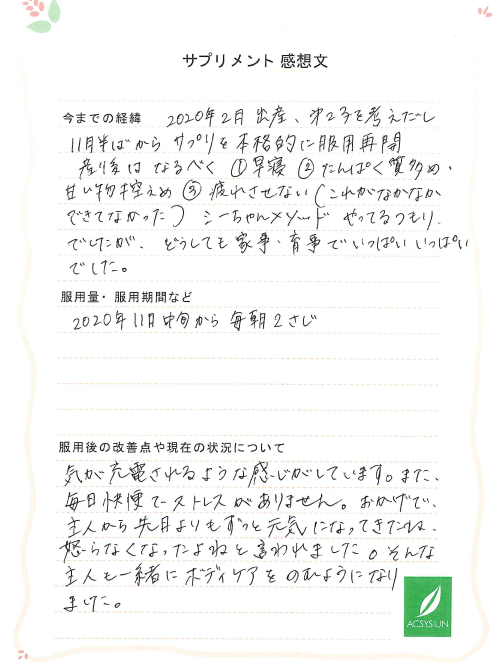 サプリメント 感想文
今までの経緯 2020年2月 出産、第2子を考えだし
11月半ばから サプリを本格的に服用再開
産後は なるべく ①早寝 ②たんぱく質多め・
甘い物控えめ ③疲れさせない(これがなかなか
できてなかった) シーちゃんメソッド やってるつもり
でしたが、どうしても家事・育児でいっぱいいっぱい
でした。
服用量・服用期間など
2020年11月中旬から 毎朝2さじ
服用後の改善点や現在の状況について
気が充電されるような感じがしています。また、
毎日快便でストレスがありません。おかげで、
主人から先月よりもずっと元気になってきたね、
怒らなくなったよねと言われました。そんな
主人も一緒にボディケアをのむようになり
ました。
ACSYSUN